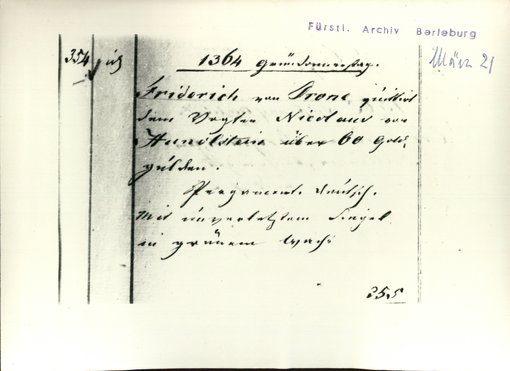 Fürstl. Archiv Berleburg
März 21
354
1364 Gründonnerstag.
Friderich von Drone quittirt
dem Vogten Nicolaus von
Hunolstein über 60 Gold-
gulden.
Pergament. Deutsch.
Mit unverletztem Siegel
in grünem Wachs
355